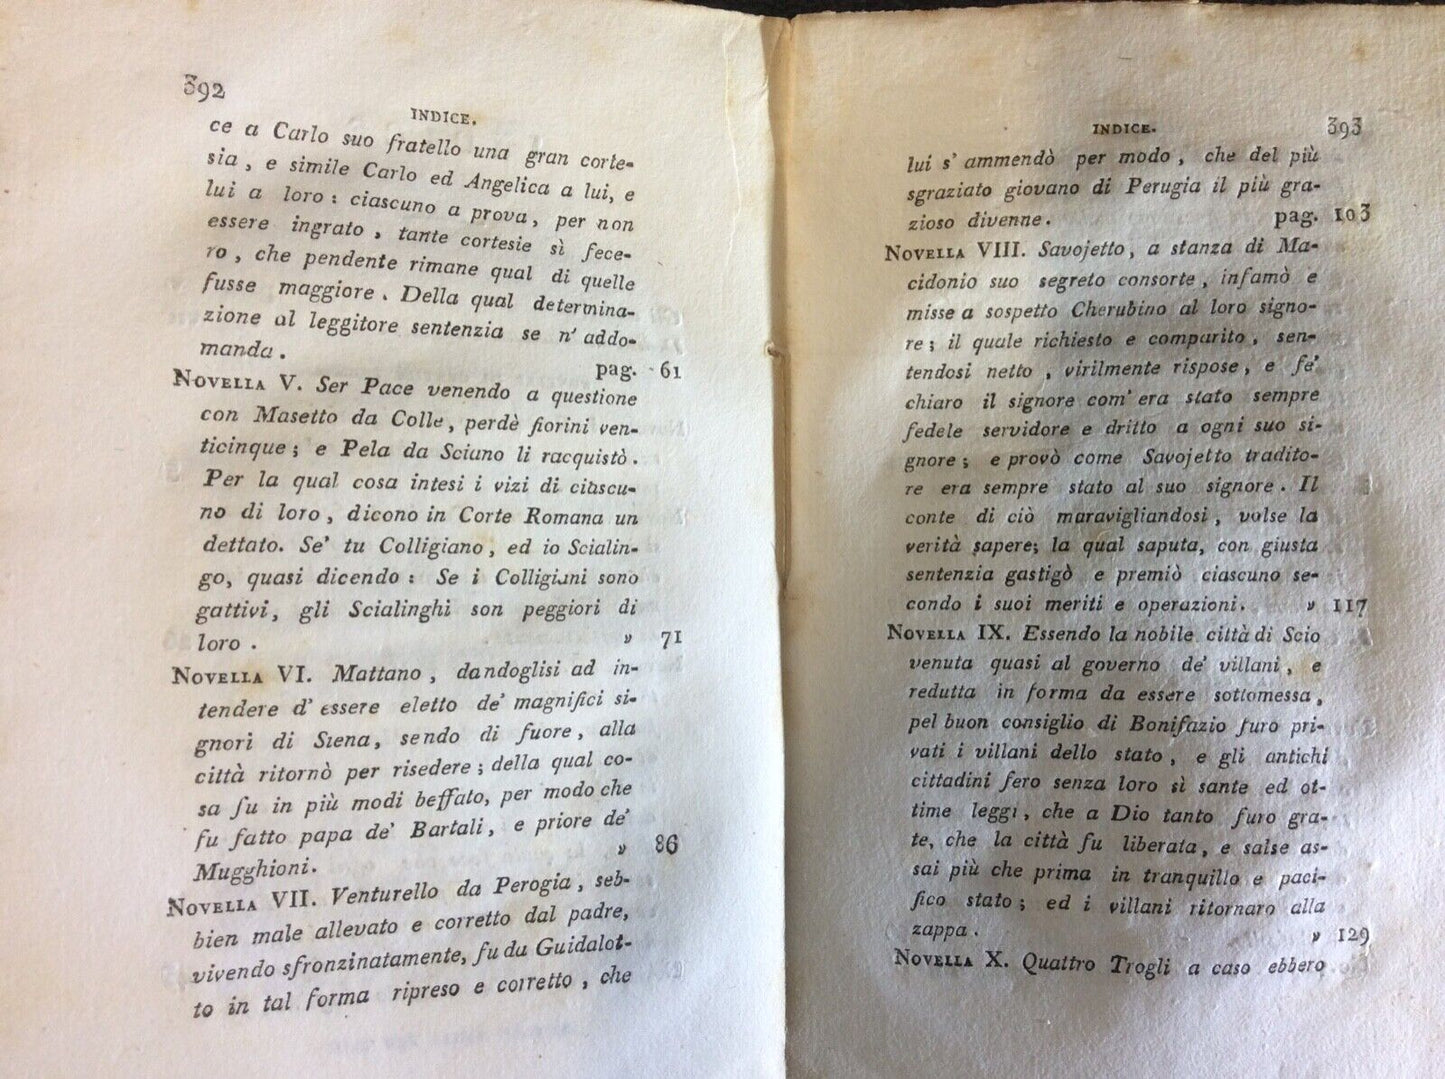 392
INDICE.
ce a Carlo suo fratello una gran corte-
sia, e simile Carlo ed Angelica a lui, e
lui a loro: ciascuno a prova, per non
essere ingrato, tante cortesie sì fece-
ro, che pendente rimane qual di quelle
fusse maggiore. Della qual determina-
zione al leggitore sentenzia se n' addo-
manda. pag. 61
NOVELLA V. Ser Pace venendo a questione
con Masetto da Colle, perdè fiorini ven-
ticinque; e Pela da Sciano li racquistò.
Per la qual cosa intesi i vizi di ciascu-
no di loro, dicono in Corte Romana un
dettato. Se' tu Colligiano, ed io Scialin-
go, quasi dicendo: Se i Colligiani sono
gattivi, gli Scialinghi son peggiori di
loro. » 71
NOVELLA VI. Mattano, dandoglisi ad in-
tendere d' essere eletto de' magnifici si-
gnori di Siena, sendo di fuore, alla
città ritornò per risedere; della qual co-
sa fu in più modi beffato, per modo che
fu fatto papa de' Bartali, e priore de'
Mugghioni. » 86
NOVELLA VII. Venturello da Perogia, seb-
bien male allevato e corretto dal padre,
vivendo sfronzinatamente, fu da Guidalot-
to in tal forma ripreso e corretto, che
INDICE. 393
lui s' ammendò per modo, che del più
sgraziato giovano di Perugia il più gra-
zioso divenne. pag. 103
NOVELLA VIII. Savojetto, a stanza di Ma-
cidonio suo segreto consorte, infamò e
misse a sospetto Cherubino al loro signo-
re; il quale richiesto e comparito, sen-
tendosi netto, virilmente rispose, e fe'
chiaro il signore com' era stato sempre
fedele servidore e dritto a ogni suo si-
gnore; e provò come Savojetto tradito-
re era sempre stato al suo signore. Il
conte di ciò maravigliandosi, volse la
verità sapere; la qual saputa, con giusta
sentenzia gastigò e premiò ciascuno se-
condo i suoi meriti e operazioni. » 117
NOVELLA IX. Essendo la nobile città di Scio
venuta quasi al governo de' villani, e
redutta in forma da essere sottomessa,
pel buon consiglio di Bonifazio furo pri-
vati i villani dello stato, e gli antichi
cittadini fero senza loro sì sante ed ot-
time leggi, che a Dio tanto furo gra-
te, che la città fu liberata, e salse as-
sai più che prima in tranquillo e paci-
fico stato; ed i villani ritornaro alla
zappa. » 129
NOVELLA X. Quattro Trogli a caso ebbero